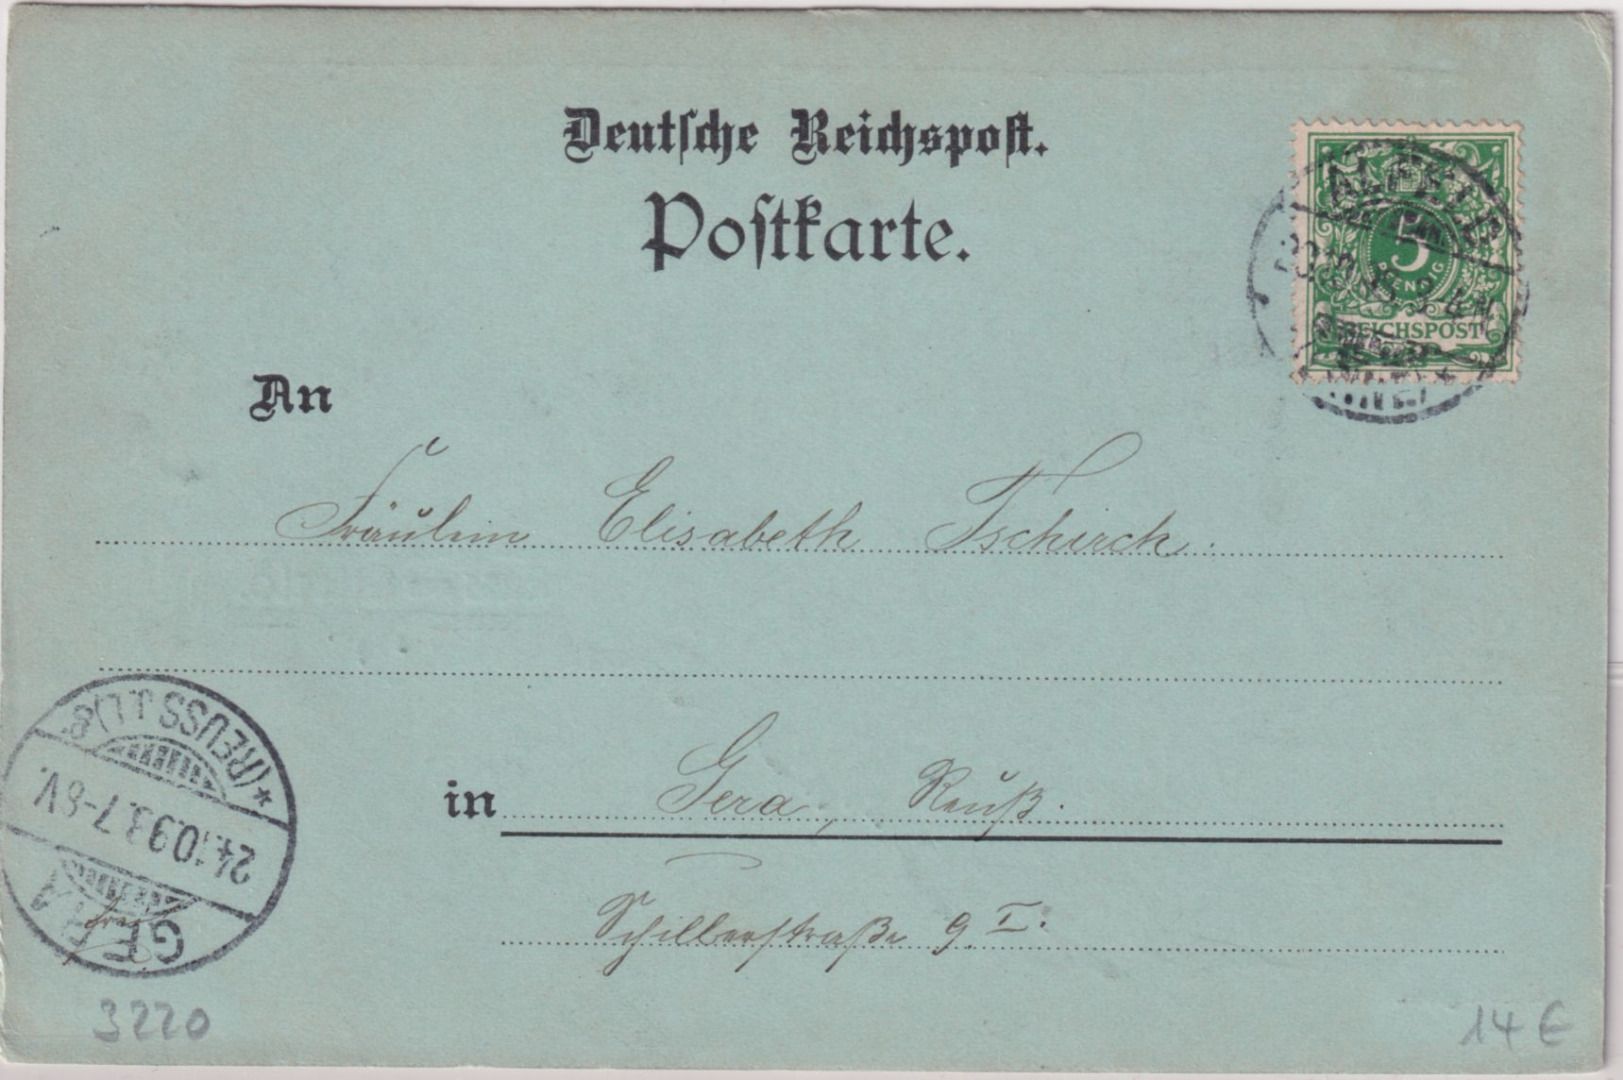 Deutsche Reichspost.
Postkarte.
5
PFENNIG
REICHSPOST
An
Fräulein Elisabeth Tschirch.
in Gera, Reuß.
Schillerstraße 9 I.
GERA
24.10.93.7-8V.
*(REUSS J.L.)g.
3220
14 €